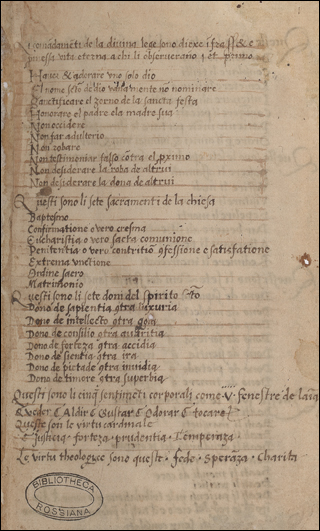 comadamēti de la divina lege sono diexe
messa vita eterna a chi li observerano
Havei & adorare uno solo dio
El nome scō de dio vanamente nō nominare
Sanctificare el zorno de la sancta festa
Honorare el padre e la madre sua
Non occidere
Non far adulterio
Non robare
Non testimoniar falso cōtra el primo
Non desiderare la roba de altrui
Non desiderare la dona de altrui
Questi sono li sete sacramenti de la chiesa
Baptesmo
Confirmatione o vero cresma
Eucharistia o vero sacra comunione
Penitentia o vero contritiō ꝯfessione e satisfatione
Extrema unctione
Ordine sacro
Matrimonio
Questi sono li sete doni del spirito scō
Dono de sapientia ꝯtra luxuria
Dono de intellecto ꝯtra gola
Dono de consilio ꝯtra avaritia
Dono de forteza ꝯtra accidia
Dono de sientia ꝯtra ira
Dono de pietade ꝯtra invidia
Dono de timore ꝯtra superbia
Questi sono li cinq̄ sentimēti corporali come V fenestre de
Veder E Aldir E Gustar E Odorar E tocare
Queste son le virtu cardinale
Justicia · forteza · prudentia · Temperāza
Le virtu theologice sono queste · fede · Sperāza · Charita
BIBLIOTHECA
ROSSIANA